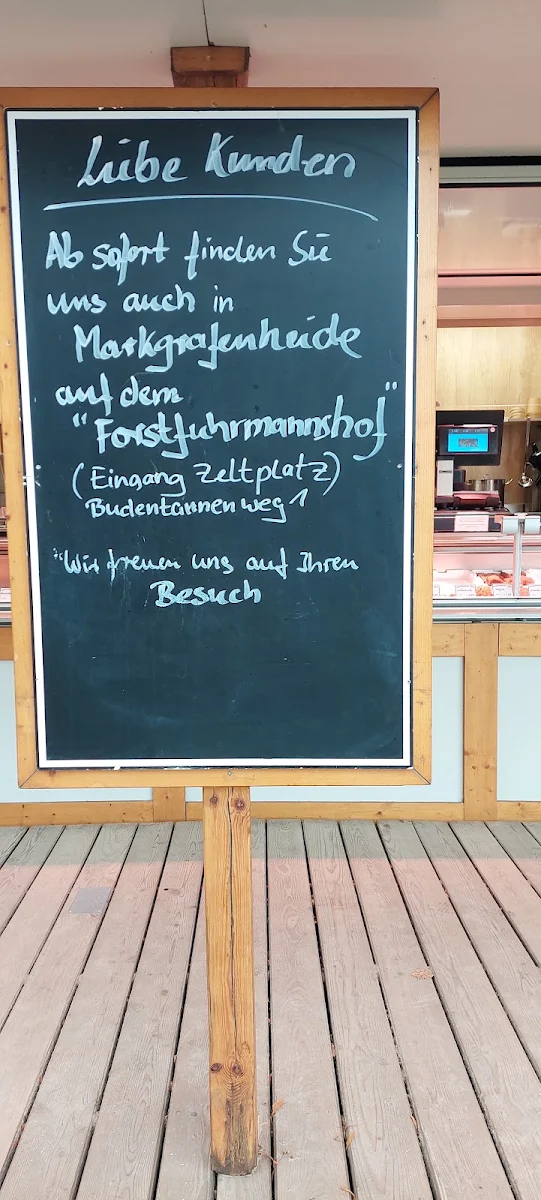 Liebe Kunden
Ab sofort finden Sie
uns auch in
Markgrafenheide
auf dem
"Forstfuhrmannshof"
(Eingang Zeltplatz)
Budentannenweg 1
"Wir freuen uns auf Ihren
Besuch